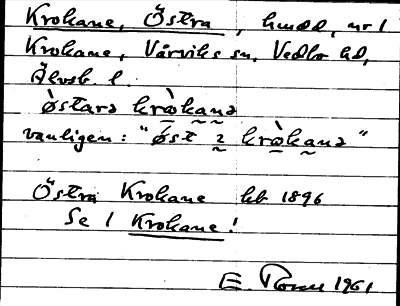 Krokane, Östra, hmdd, nr 1
Krokane, Vårviks sn, Vedbo hd,
Älvsb. l.
òstarə kròkanə
vanligen: "øst 2 kròkanə"
Östra Krokane hb 1896
Se 1 Krokane!
E. 1961